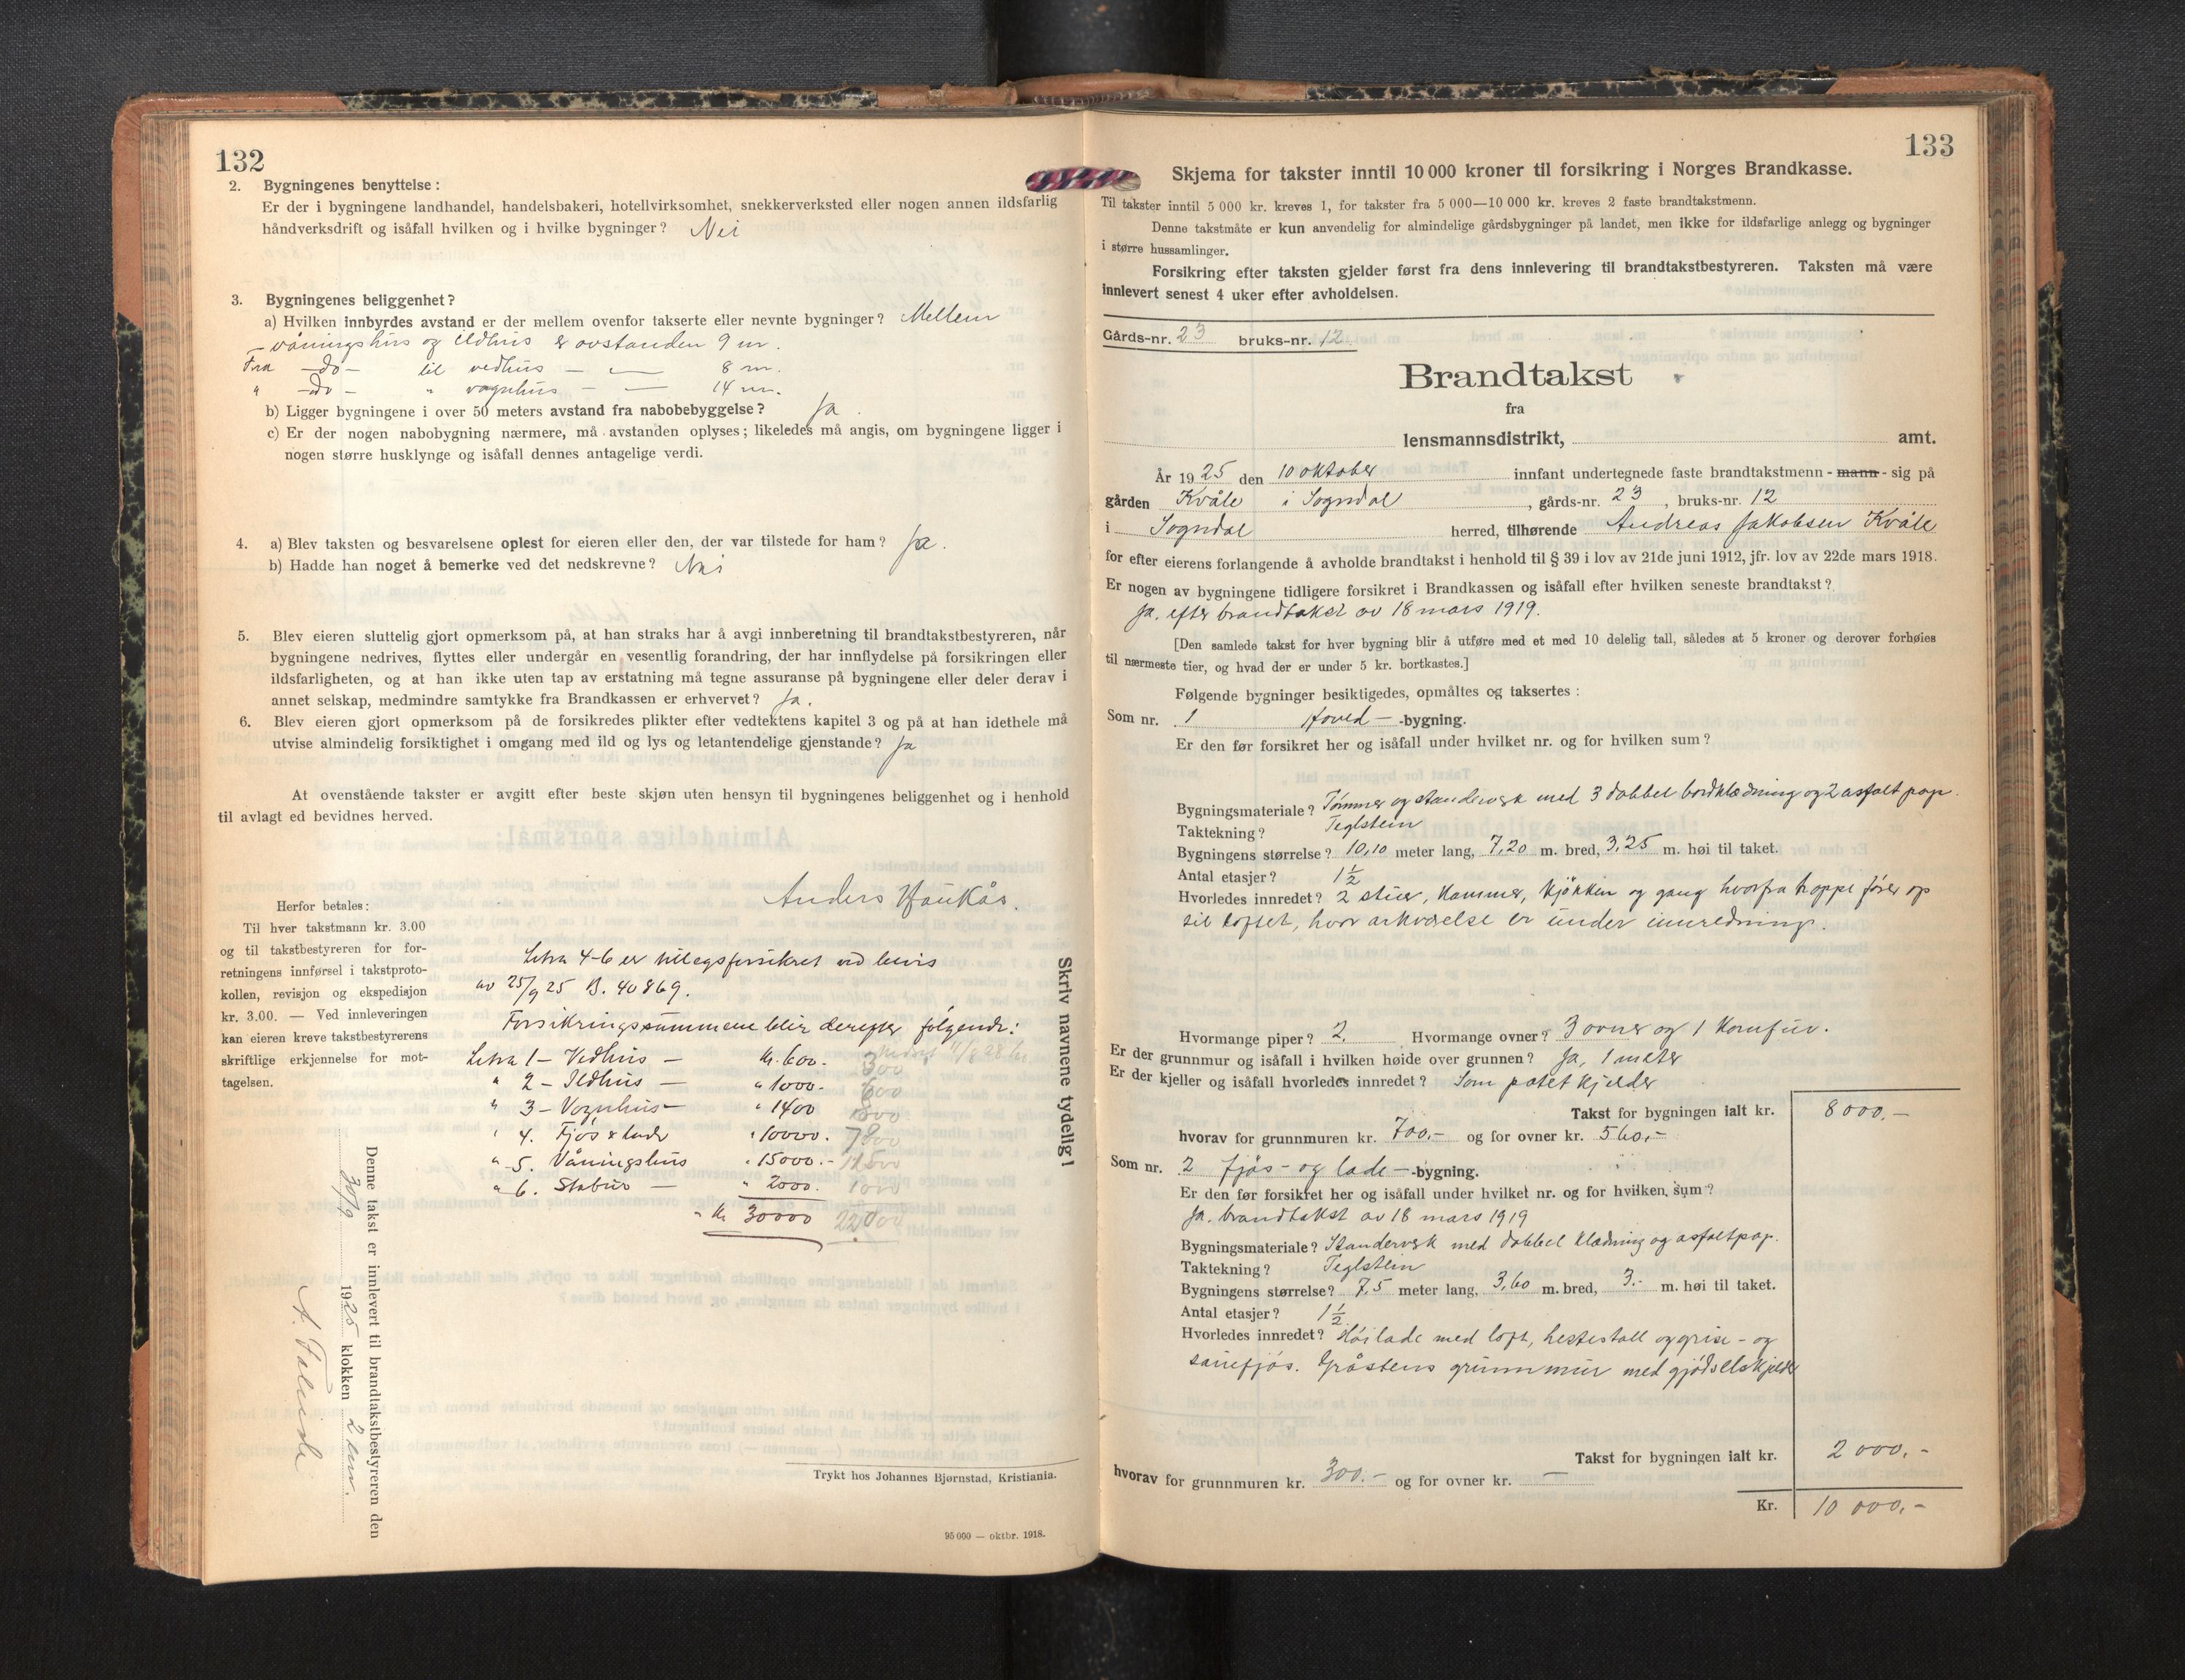 132
2. Bygningenes benyttelse:
Er der i bygningene landhandel, handelsbakeri, hotellvirksomhet, snekkerverksted eller nogen annen ildsfarlig
håndverksdrift og isåfall hvilken og i hvilke bygninger? Nei
3. Bygningenes beliggenhet?
a) Hvilken innbyrdes avstand er der mellem ovenfor takserte eller nevnte bygninger? Mellem
våningshus og ildhus er avstanden 9 m.
Fra -do- til vedhus - — 8 m.
" -do- " vognhus - — 14 m.
b) Ligger bygningene i over 50 meters avstand fra nabobebyggelse? Ja.
c) Er der nogen nabobygning nærmere, må avstanden oplyses; likeledes må angis, om bygningene ligger i
nogen større husklynge og isåfall dennes antagelige verdi.
4. a) Blev taksten og besvarelsene oplest for eieren eller den, der var tilstede for ham? Ja.
b) Hadde han noget å bemerke ved det nedskrevne? Nei
5. Blev eieren sluttelig gjort opmerksom på, at han straks har å avgi innberetning til brandtakstbestyreren, når
bygningene nedrives, flyttes eller undergår en vesentlig forandring, der har innflydelse på forsikringen eller
ildsfarligheten, og at han ikke uten tap av erstatning må tegne assuranse på bygningene eller deler derav i
annet selskap, medmindre samtykke fra Brandkassen er erhvervet? Ja.
6. Blev eieren gjort opmerksom på de forsikredes plikter efter vedtektens kapitel 3 og på at han idethele må
utvise almindelig forsiktighet i omgang med ild og lys og letantendelige gjenstande? Ja
At ovenstående takster er avgitt efter beste skjøn uten hensyn til bygningenes beliggenhet og i henhold
til avlagt ed bevidnes herved.
Anders Haukås.
Herfor betales:
Til hver takstmann kr. 3.00
og til takstbestyreren for for-
retningens innførsel i takstproto-
kollen, revisjon og ekspedisjon
kr. 3.00. — Ved innleveringen
kan eieren kreve takstbestyrerens
skriftlige erkjennelse for mot-
tagelsen.
Litra 4-6 er tillegsforsikret ved bevis
av 25/9 25 B. 40869.
Forsikringssummene blir derefter følgende:
Litra 1 - Vedhus - Kr. 600.- 300
" 2 - Ildhus - " 1000.- 600
" 3 - Vognhus - " 1400 800
" 4. Fjøs & lade " 10000.
" 5. Våningshus " 15000.-
" 6. Stabur - " 2000. 1000
Kr 30000 22000
Skriv navnene tydelig!
Denne takst er innlevert til brandtakstbestyreren den
30/9 1925 klokken 2 em.
Trykt hos Johannes Bjørnstad, Kristiania.
95 000 — oktbr. 1918.
133
Skjema for takster inntil 10 000 kroner til forsikring i Norges Brandkasse.
Til takster inntil 5 000 kr. kreves 1, for takster fra 5 000—10 000 kr. kreves 2 faste brandtakstmenn.
Denne takstmåte er kun anvendelig for almindelige gårdsbygninger på landet, men ikke for ildsfarlige anlegg og bygninger
i større hussamlinger.
Forsikring efter taksten gjelder først fra dens innlevering til brandtakstbestyreren. Taksten må være
innlevert senest 4 uker efter avholdelsen.
Gårds-nr. 23 bruks-nr. 12.
Brandtakst
fra
lensmannsdistrikt, amt.
År 1925 den 10 oktober innfant undertegnede faste brandtakstmenn - mann - sig på
gården Kvåle i Sogndal, gårds-nr. 23, bruks-nr. 12
i Sogndal herred, tilhørende Andreas Jakobsen Kvåle
for efter eierens forlangende å avholde brandtakst i henhold til § 39 i lov av 21de juni 1912, jfr. lov av 22de mars 1918.
Er nogen av bygningene tidligere forsikret i Brandkassen og isåfall efter hvilken seneste brandtakst?
Ja. efter brandtakst av 18 mars 1919.
[Den samlede takst for hver bygning blir å utføre med et med 10 delelig tall, således at 5 kroner og derover forhøies
til nærmeste tier, og hvad der er under 5 kr. bortkastes.]
Følgende bygninger besiktigedes, opmåltes og taksertes:
Som nr. 1 Hoved — -bygning.
Er den før forsikret her og isåfall under hvilket nr. og for hvilken sum?
Bygningsmateriale? Tømmer og standerverk med 3 dobbel bordklædning og 2 asfalt pap.
Taktekning? Teglstein
Bygningens størrelse? 10,10 meter lang, 7,20 m. bred, 3,25 m. høi til taket.
Antal etasjer? 1½
Hvorledes innredet? 2 stuer, kammer, kjøkken og gang hvorfra trappe fører op
til loftet, hvor arkværelse er under innredning.
Hvormange piper? 2. Hvormange ovner? 3 ovner og 1 komfur.
Er der grunnmur og isåfall i hvilken høide over grunnen? Ja, 1 meter
Er der kjeller og isåfall hvorledes innredet? Som potet kjelder
Takst for bygningen ialt kr. 8 000,—
hvorav for grunnmuren kr. 700,- og for ovner kr. 560,-
Som nr. 2 fjøs- og lade — -bygning.
Er den før forsikret her og isåfall under hvilket nr. og for hvilken sum?
Ja. brandtakst av 18 mars 1919
Bygningsmateriale? Standerverk med dobbel klædning og asfaltpap.
Taktekning? Teglstein
Bygningens størrelse? 7,5 meter lang, 3,60 m. bred, 3.- m. høi til taket.
Antal etasjer? 1½
Hvorledes innredet? Høilade med loft, hestestall og grise- og
sauefjøs. Gråstens grunnmur med gjødselskjelder
Takst for bygningen ialt kr. 2 000,-
hvorav for grunnmuren kr. 300.- og for ovner kr. —
Kr. 10 000,-